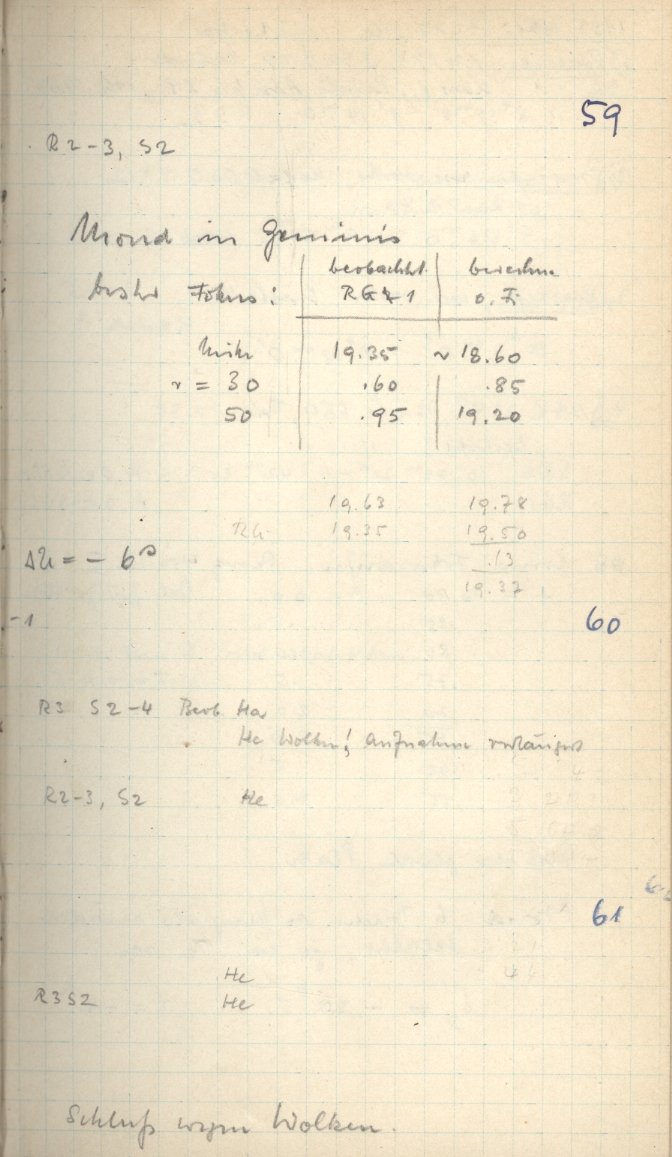 59
R2-3, S2
Mond in Geminis
beobachtet berechn
bester Fokus: RG 1 o. Fi
Mitte 19.35 ~ 18.60
r = 30 .60 .85
50 .95 19.20
19.63 19.78
19.35 19.50
.13
Δu = - 6ˢ
19.37
-1
60
R3 S2-4 Beob Ha
He Wolken! Aufnahme verlängert
R2-3, S2 He
61
He
R3 S2 He
Schluß wegen Wolken.